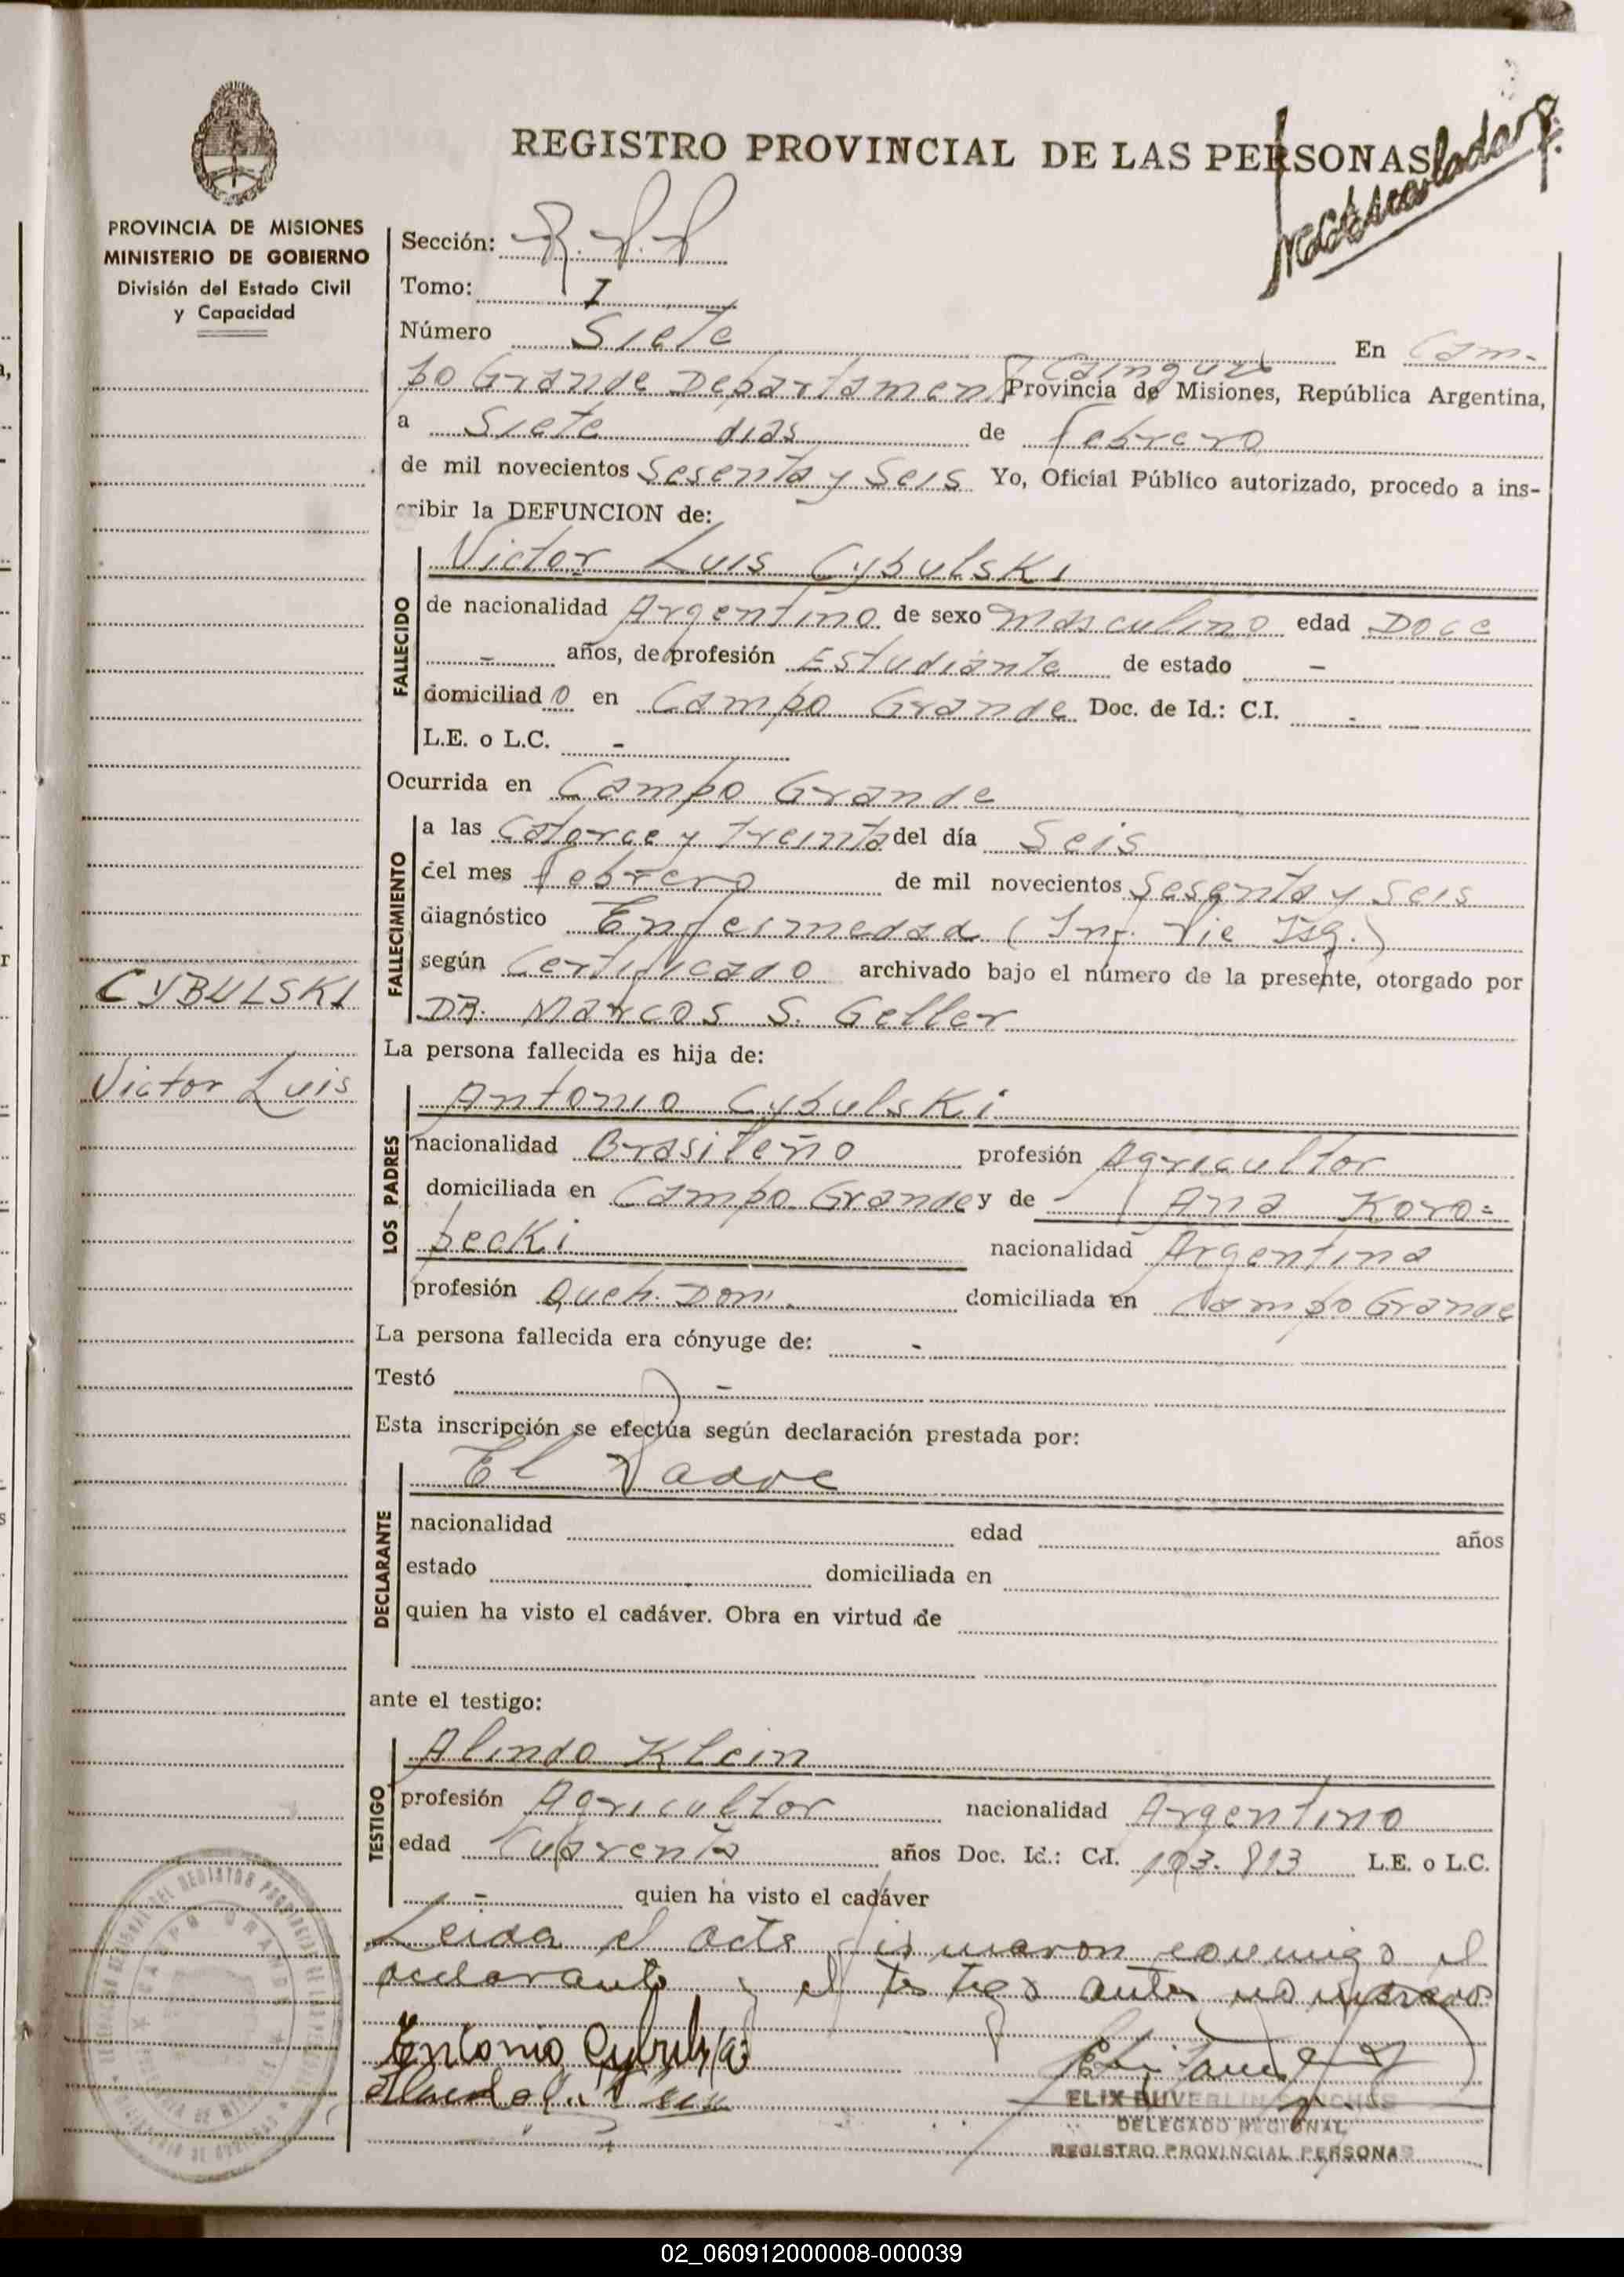 REGISTRO PROVINCIAL DE LAS PERSONAS
PROVINCIA DE MISIONES
MINISTERIO DE GOBIERNO
División del Estado Civil
y Capacidad
Sección:
Tomo: I
Número Siete En Cam-
po Grande Departament Cainguás Provincia de Misiones, República Argentina,
a Siete dias de febrero
de mil novecientos Sesenta y Seis Yo, Oficial Público autorizado, procedo a ins-
cribir la DEFUNCION de:
FALLECIDO
Victor Luis Cybulski
de nacionalidad Argentino de sexo masculino edad Doce
- años, de profesión Estudiante de estado -
domiciliad o en Campo Grande Doc. de Id.: C.I. -
L.E. o L.C. -
Ocurrida en Campo Grande
FALLECIMIENTO
a las Catorce y treinta del día Seis
del mes febrero de mil novecientos Sesenta y Seis
diagnóstico Enfermedad (Inf. Vie Isq.)
según Certificado archivado bajo el número de la presente, otorgado por
DR. Marcos S. Geller
CYBULSKI
Victor Luis
La persona fallecida es hija de:
LOS PADRES
Antonio Cybulski
nacionalidad Brasileño profesión Agricultor
domiciliada en Campo Grande y de Ana Koro=
pecki nacionalidad Argentina
profesión Queh. Dom. domiciliada en Campo Grande
La persona fallecida era cónyuge de: -
Testó -
Esta inscripción se efectúa según declaración prestada por:
DECLARANTE
El Padre
nacionalidad edad años
estado domiciliada en
quien ha visto el cadáver. Obra en virtud de
ante el testigo:
TESTIGO
Alindo Klein
profesión Agricultor nacionalidad Argentino
edad Cuarenta años Doc. Id.: C.I. 103.813 L.E. o L.C.
- quien ha visto el cadáver
Leida el acta firmaron conmigo el
declarante y el testigo antes nombrado
Antonio Cybulski
DELEGADO REGIONAL
REGISTRO PROVINCIAL PERSONAS
02_060912000008-000039